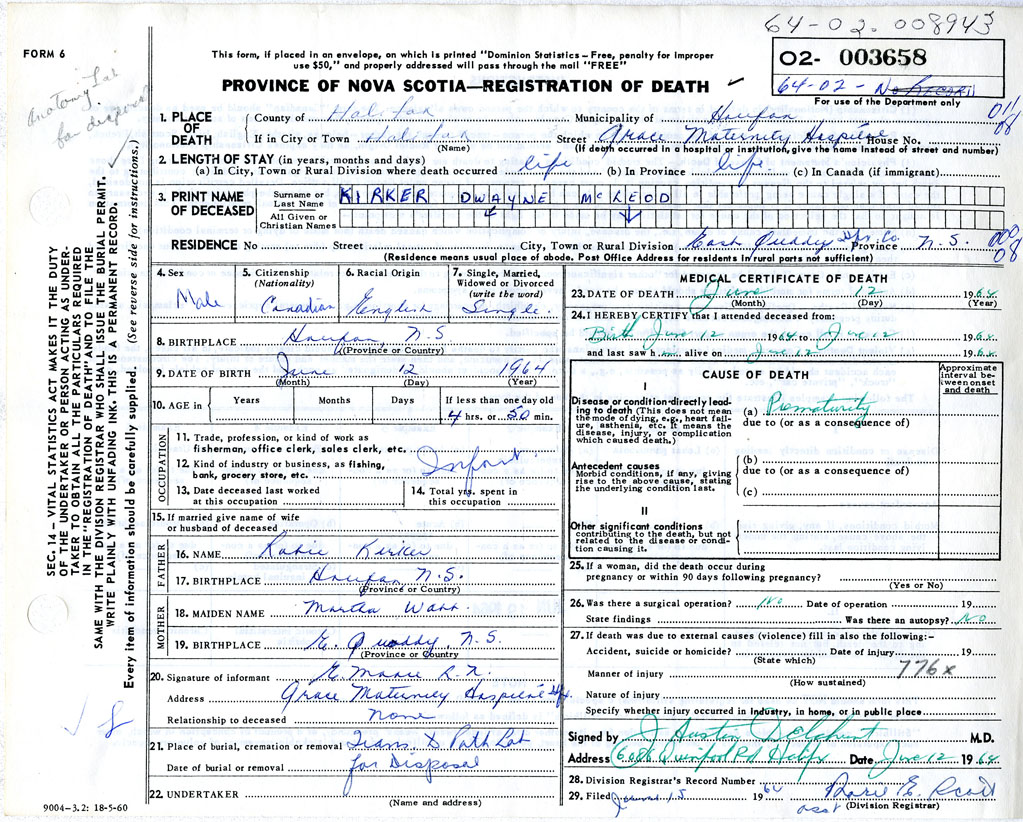 64-02. 008943
FORM 6
This form, if placed in an envelope, on which is printed "Dominion Statistics – Free, penalty for improper
use $50," and properly addressed will pass through the mail "FREE"
02- 003658
64-02 - No Record
For use of the Department only
PROVINCE OF NOVA SCOTIA—REGISTRATION OF DEATH
Anatomy Lab
for disposal
1. PLACE OF DEATH County of Halifax Municipality of Halifax
If in City or Town Halifax Street Grace Maternity Hospital House No.
(Name) (If death occurred in a hospital or institution, give name instead of street and number)
2. LENGTH OF STAY (in years, months and days)
(a) In City, Town or Rural Division where death occurred life (b) In Province life. (c) In Canada (if immigrant)
3. PRINT NAME OF DECEASED Surname or Last Name KIRKER DWAYNE McLEOD
All Given or Christian Names
RESIDENCE No Street City, Town or Rural Division East Quoddy Hfx Co. Province N.S.
(Residence means usual place of abode. Post Office Address for residents in rural parts not sufficient)
4. Sex
Male
5. Citizenship
(Nationality)
Canadian
6. Racial Origin
English
7. Single, Married,
Widowed or Divorced
(write the word)
Single.
8. BIRTHPLACE Halifax, N.S.
(Province or Country)
9. DATE OF BIRTH June 12 1964
(Month) (Day) (Year)
10. AGE in Years Months Days If less than one day old
4 hrs. or 50 min.
OCCUPATION
11. Trade, profession, or kind of work as
fisherman, office clerk, sales clerk, etc.
12. Kind of industry or business, as fishing,
bank, grocery store, etc.
Infant.
13. Date deceased last worked
at this occupation
14. Total yrs. spent in
this occupation
15. If married give name of wife
or husband of deceased
FATHER
16. NAME Kirker
17. BIRTHPLACE Halifax, N.S.
(Province or Country)
MOTHER
18. MAIDEN NAME Martha
19. BIRTHPLACE E. Quoddy, N.S.
(Province or Country)
20. Signature of informant R.N.
Address Grace Maternity Hospital Hfx.
Relationship to deceased none
21. Place of burial, cremation or removal Trans to Path Lab
Date of burial or removal for Disposal
22. UNDERTAKER
(Name and address)
9004–3.2: 18-5-60
MEDICAL CERTIFICATE OF DEATH
23. DATE OF DEATH June 12 1964
(Month) (Day) (Year)
24. I HEREBY CERTIFY that I attended deceased from:
Birth June 12 1964 to June 12 1964
and last saw h im alive on June 12 1964
CAUSE OF DEATH
Approximate
interval be-
tween onset
and death
I
Disease or condition directly lead-
ing to death (This does not mean
the mode of dying, e.g., heart fail-
ure, asthenia, etc. It means the
disease, injury, or complication
which caused death.)
(a) Prematurity
due to (or as a consequence of)
Antecedent causes
Morbid conditions, if any, giving
rise to the above cause, stating
the underlying condition last.
(b)
due to (or as a consequence of)
(c)
II
Other significant conditions
contributing to the death, but not
related to the disease or condi-
tion causing it.
25. If a woman, did the death occur during
pregnancy or within 90 days following pregnancy?
(Yes or No)
26. Was there a surgical operation? No Date of operation 19
State findings Was there an autopsy? No
27. If death was due to external causes (violence) fill in also the following:–
Accident, suicide or homicide? Date of injury 19
(State which)
776x
Manner of injury
(How sustained)
Nature of injury
Specify whether injury occurred in industry, in home, or in public place
Signed by J Austin M.D.
Address 6086 Quinpool Rd Halifx Date June 12 1964
28. Division Registrar's Record Number
29. Filed 15 1964
asst (Division Registrar)
SEC. 14 – VITAL STATISTICS ACT MAKES IT THE DUTY
OF THE UNDERTAKER OR PERSON ACTING AS UNDER-
TAKER TO OBTAIN ALL THE PARTICULARS REQUIRED
IN THE "REGISTRATION OF DEATH" AND TO FILE THE
SAME WITH THE DIVISION REGISTRAR WHO SHALL ISSUE THE BURIAL PERMIT.
WRITE PLAINLY WITH UNFADING INK. THIS IS A PERMANENT RECORD.
Every item of information should be carefully supplied. (See reverse side for instructions.)